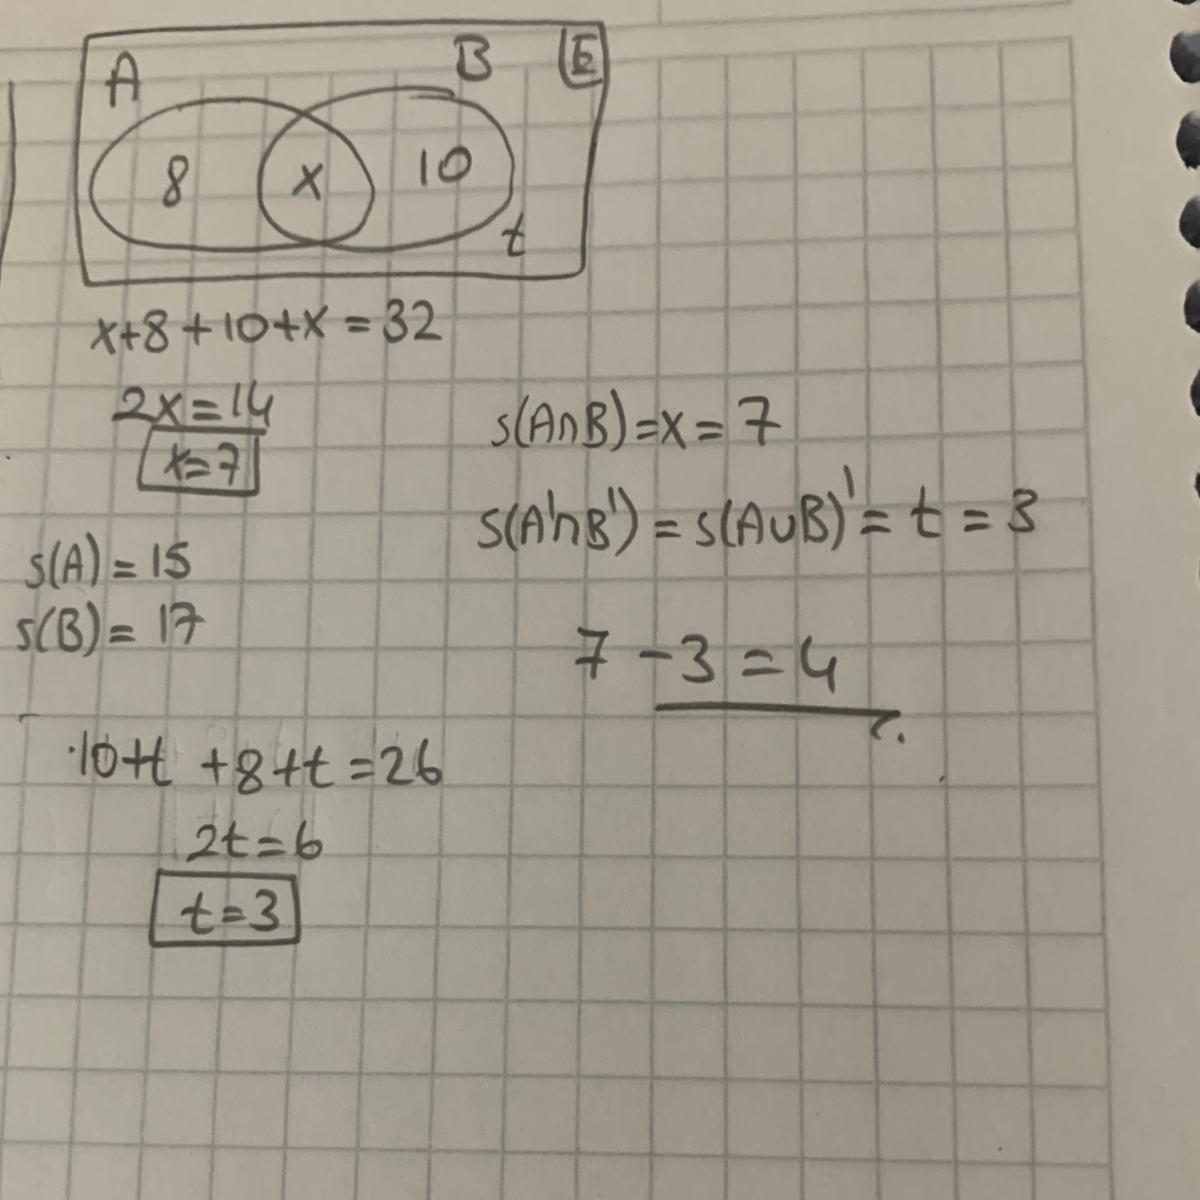 A B E
8 x 10
t
x+8+10+x=32
2x=14
x=7
s(A∩B)=x=7
s(A'∩B')=s(A∪B)'=t=3
s(A)=15
s(B)=17
7-3=4
10+t+8+t=26
2t=6
t=3